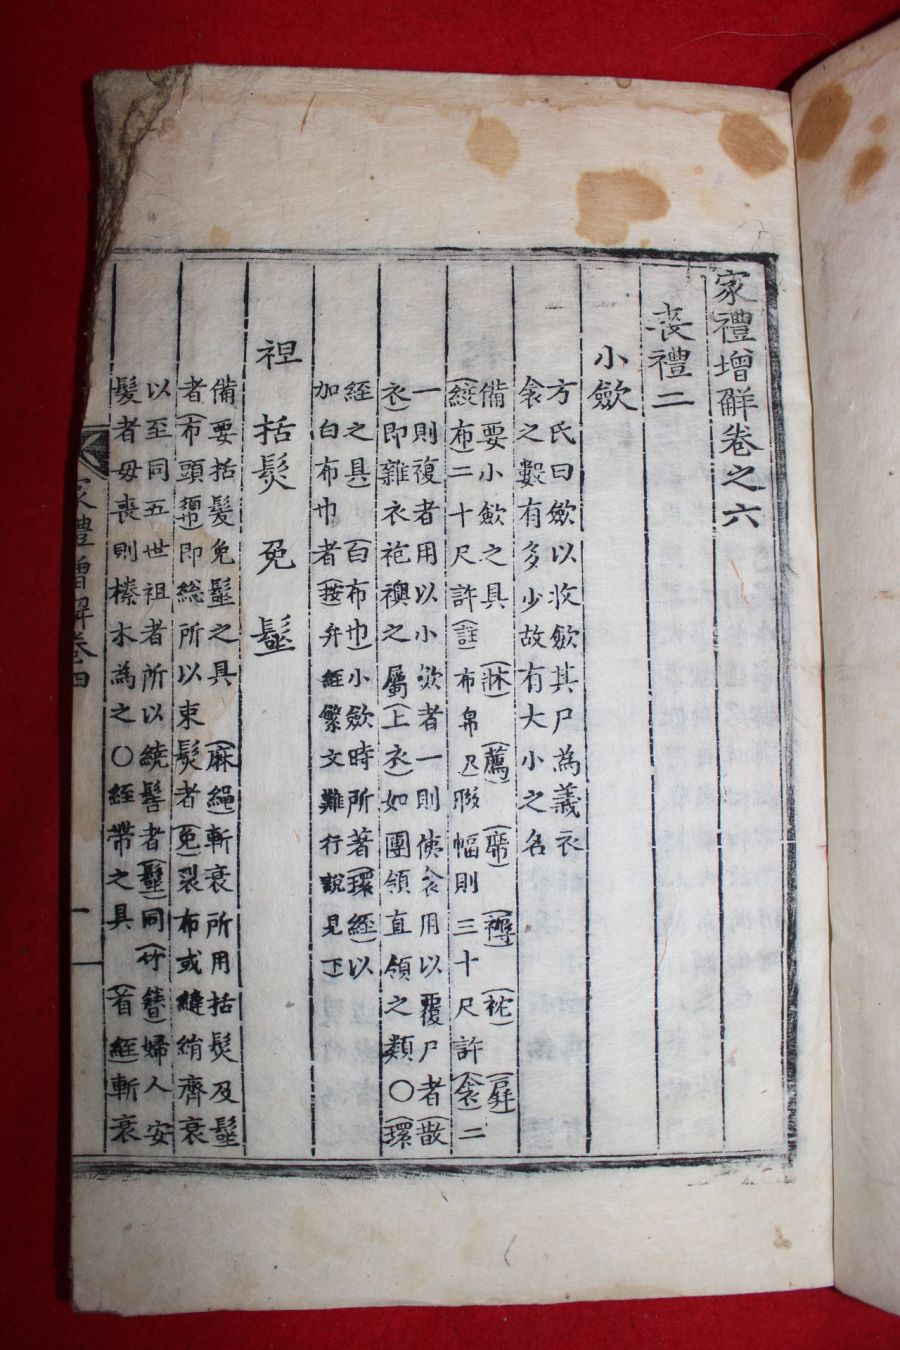 家禮增解卷之六
喪禮二
小歛
方氏曰歛以收歛其尸為義衣
衾之數有多少故有大小之名
備要小歛之具(牀)(薦)(席)(褥)(枕)(屛)
(絞布)二十尺許(註)布帛尺假幅則三十尺許(衾)二
一則複者用以小歛者一則俠衾用以覆尸者(散
衣)即雜衣袍襖之屬(上衣)如團領直領之類〇(環
絰之具)(白布巾)小歛時所著(環絰)以
加白布巾者(按)弁絰繁文難行說見下
袒 括髮 免 髽
備要括髮免髽之具(麻繩)斬衰所用括髮及髽
者(布頭𢄼)即総所以束髮者(免)裂布或縫絹齊衰
以至同五世祖者所以繞髻者(髽)同(竹簪)婦人安
髮者母喪則榛木為之〇絰帶之具(首絰)斬衰
家禮增解卷四
一